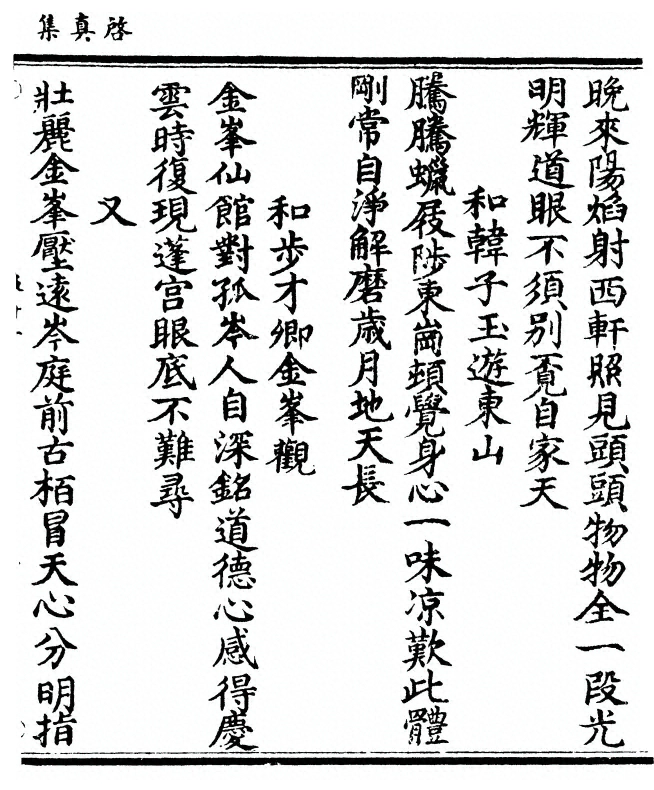 啓真集
晚來陽焰射西軒照見頭頭物物全一段光
明輝道眼不須别覔自家天
和韓子玉遊東山
騰騰蠟屐陟東崗頓覺身心一味凉歎此體
剛常自淨解磨歲月地天長
和步才卿金峯觀
金峯仙館對孤岑人自深銘道德心感得慶
雲時復現蓬宫眼底不難尋
又
壯麗金峯壓遠岑庭前古栢冒天心分明指